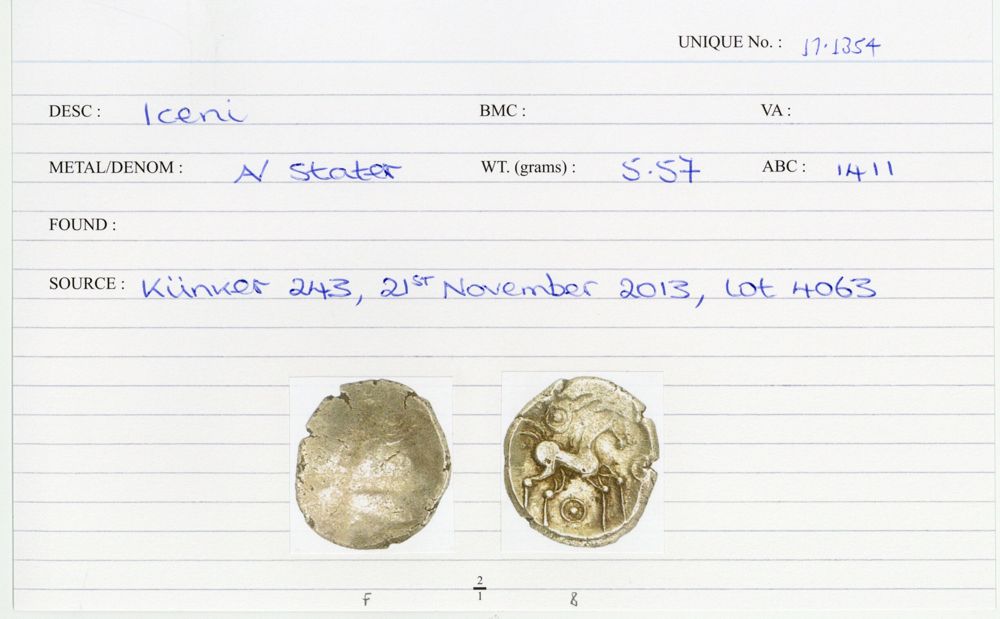 UNIQUE No. : 17.1354
DESC : Iceni BMC : VA :
METAL/DENOM : N Stater WT. (grams) : 5.57 ABC : 1411
FOUND :
SOURCE : Künker 243, 21ST November 2013, Lot 4063
2
1
F 8